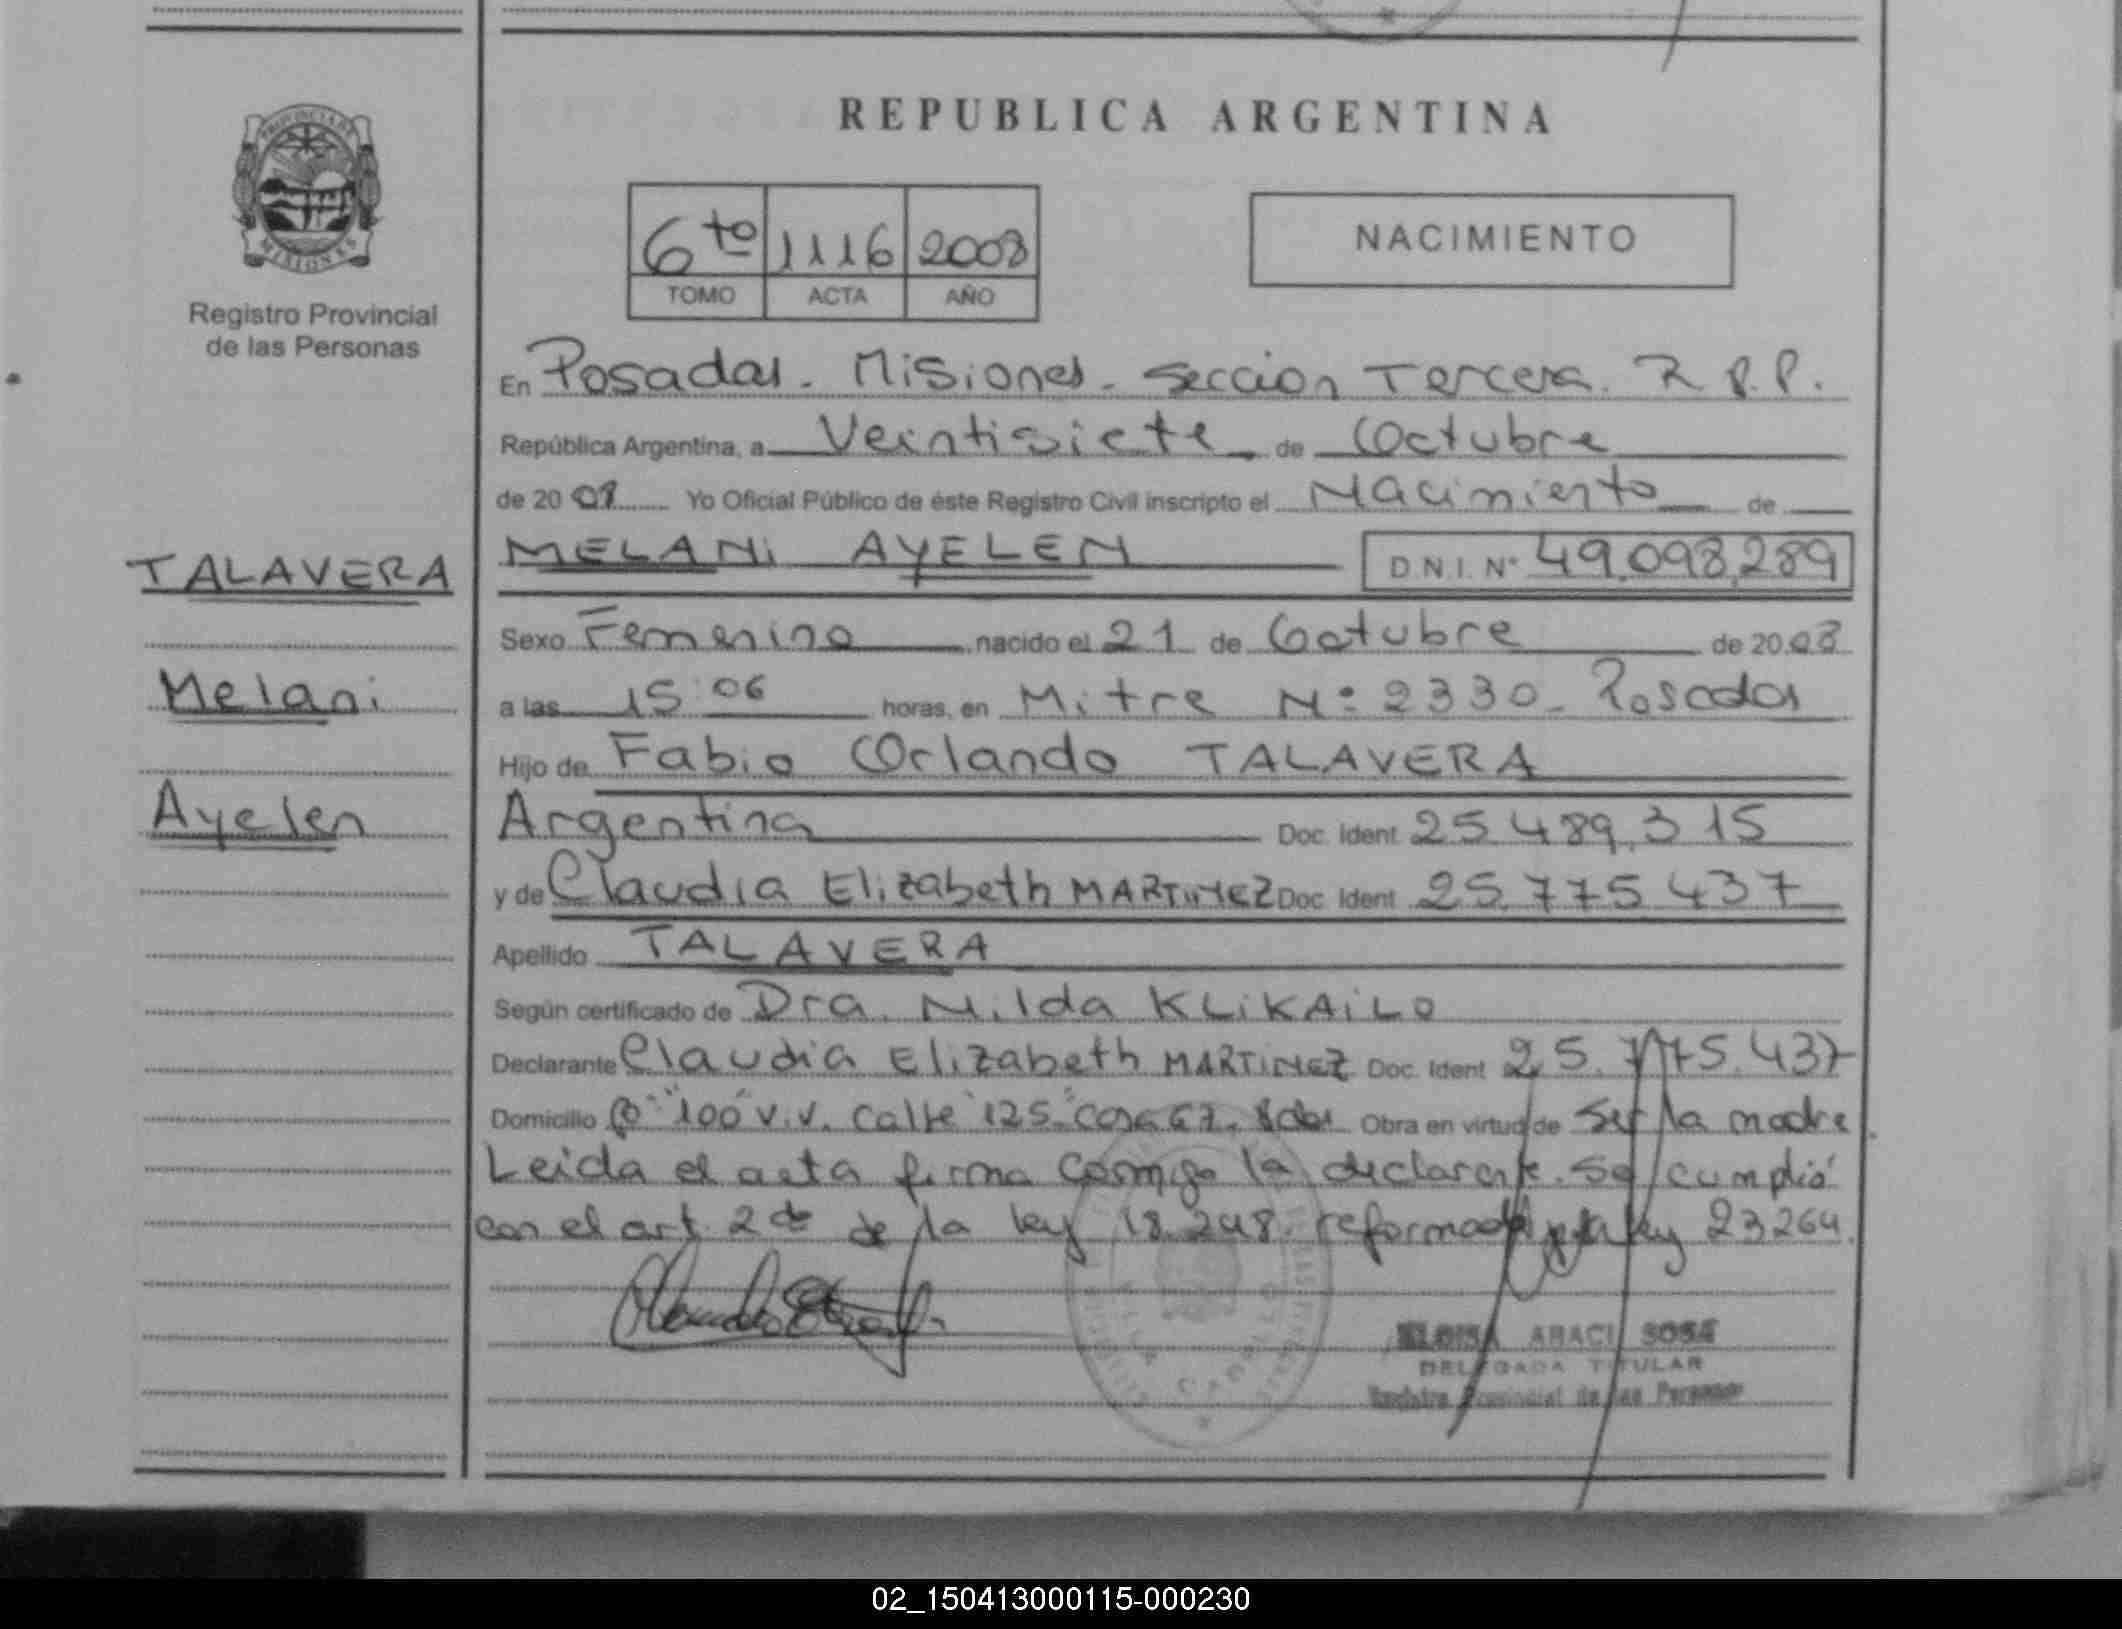 REPUBLICA ARGENTINA
PROVINCIA DE
MISIONES
Registro Provincial
de las Personas
6to 1116 2008
TOMO ACTA AÑO
NACIMIENTO
En Posadas. Misiones. Sección Tercera. R.P.P.
República Argentina, a Veintisiete de Octubre
de 2008 Yo Oficial Público de éste Registro Civil inscripto el Nacimiento de
MELANi AYELEN D.N.I. Nº 49.098.289
TALAVERA
Melani
Ayelen
Sexo Femenino nacido el 21 de Octubre de 2008
a las 15:06 horas, en Mitre Nº 2330. Posadas
Hijo de Fabio Orlando TALAVERA
Argentina Doc. Ident. 25.489.315
y de Claudia Elizabeth MARTiNEZ Doc. Ident. 25.775.437
Apellido TALAVERA
Según certificado de Dra. Nilda KLiKAiLO
Declarante Claudia Elizabeth MARTiNEZ Doc. Ident. 25.775.437
Domicilio "100 V.V. Calle 125. Casa 67. Obra en virtud de Ser la madre.
Leida el acta firma conmigo la declarante. Se cumplió
con el art. 2do de la ley 18.248. reformada ley 23264.
ELOISA ABACI SOSA
DELEGADA TITULAR
Registro Provincial de las Personas
02_150413000115-000230